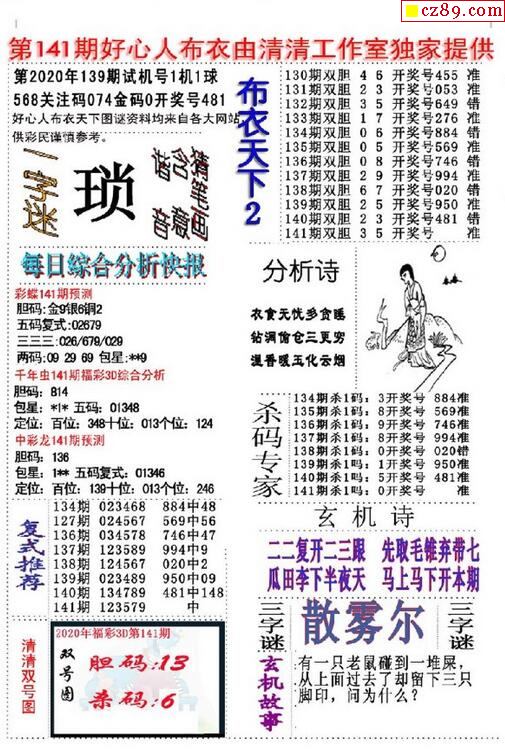 cz89.com
第141期好心人布衣由清清工作室独家提供
第2020年139期试机号1机1球
568关注码074金码0开奖号481
好心人布衣天下图谜资料均来自各大网站,
供彩民谨慎参考。
一字迷
琐
谐含猜
音意笔画
每日綜合分析快报
彩蝶141期预测
胆码:金9银6铜2
五码复式:02679
三三三:026/679/029
两码:09 29 69 包星:**9
千年虫141期福彩3D综合分析
胆码：814
包星：*I* 五码：01348
定位：百位：348十位：013个位：124
中彩龙141期预测
胆码：136
包星：1** 五码复式：01346
定位：百位：139十位：013个位：246
复式推荐
134期 023468 884中48
127期 024567 569中56
136期 034578 746中47
137期 123589 994中9
138期 124567 020中2
139期 023489 950中09
140期 134789 481中148
141期 123579 中
清清双号图
2020年福彩3D第141期
双号图
胆码:13
杀码:6
布衣天下2
130期双胆 4 6 开奖号455 准
131期双胆 2 3 开奖号053 准
132期双胆 3 5 开奖号649 错
133期双胆 1 7 开奖号276 准
134期双胆 0 6 开奖号884 错
135期双胆 0 5 开奖号569 准
136期双胆 0 8 开奖号746 错
137期双胆 2 9 开奖号994 准
138期双胆 6 7 开奖号020 错
139期双胆 2 5 开奖号950 准
140期双胆 2 3 开奖号481 错
141期双胆 3 5 开奖号 准
分析诗
衣食无忧多贪睡
钻洞偷仓三更穷
温香暖玉化云烟
杀码专家
134期杀1码: 3开奖号 884准
135期杀1码: 8开奖号 569准
136期杀1码: 9开奖号 746准
137期杀1码: 8开奖号 994准
138期杀1码: 0开奖号 020错
139期杀1吗: 1开奖号 950准
140期杀1吗: 5开奖号 481准
141期杀1吗: 0开奖号 准
玄机诗
二二复开二三跟 先取毛锥弃带七
瓜田李下半夜天 马上马下开本期
三字谜
散雾尔
三字谜
玄机故事
有一只老鼠碰到一堆屎,
从上面过去了却留下三只
脚印，问为什么?